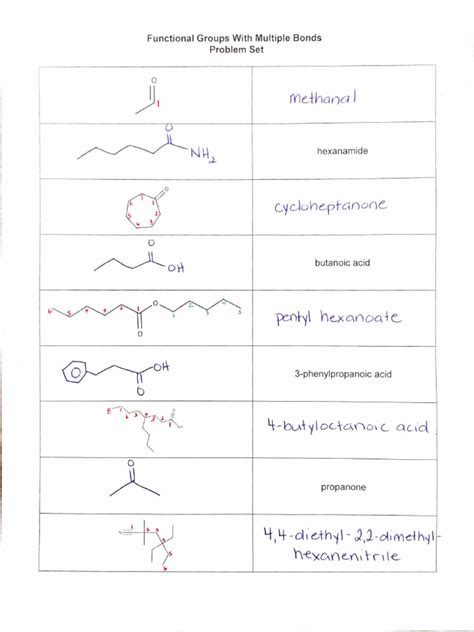 Functional Groups With Multiple Bonds
Problem Set
O
1
methanal
O
NH2
hexanamide
O
cycloheptanone
O
OH
butanoic acid
O
O
pentyl hexanoate
OH
O
3-phenylpropanoic acid
4-butyloctanoic acid
O
propanone
4,4-diethyl-2,2-dimethyl-
hexanenitrile